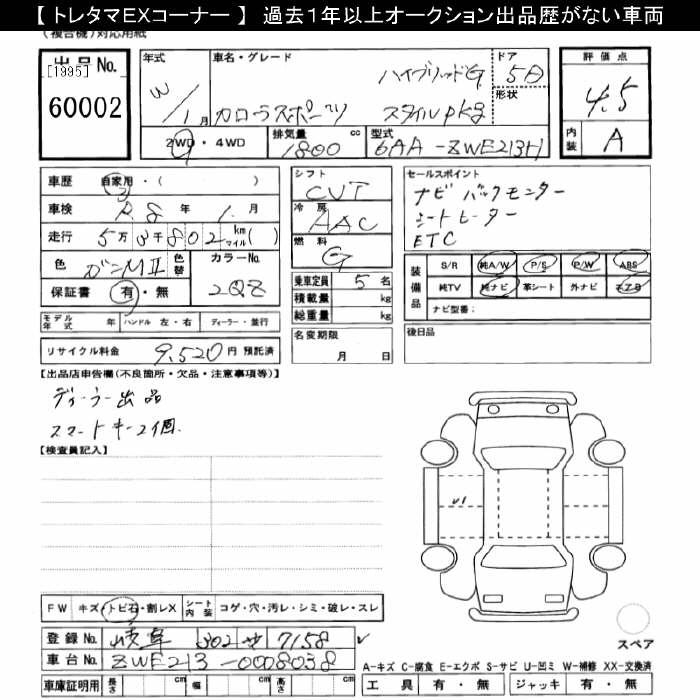 【 トレタマEXコーナー 】 過去1年以上オークション出品歴がない車両
(複合機)対応用紙
出品No. [1995] 60002
年式 /1月
車名・グレード ハイブリッドG
カローラスポーツ スタイルpkg
ドア 5D
形状
2WD・4WD
排気量 1800 cc
型式 6AA-ZWE213H
評価点 4.5
内装 A
車歴 自家用・( )
車検 R8年 1月
走行 5万3千802 km マイル( )
色 ガンMⅡ 色替 カラーNo. 2QZ
保証書 有・無
モデル年式 年 ハンドル 左・右 ディーラー・並行
リサイクル料金 9,520円 預託済
シフト CVT
冷房 AAC
燃料 G
乗車定員 5名
積載量 kg
総重量 kg
名変期限 月 日
セールスポイント
ナビ バックモニター
シートヒーター
ETC
装備品 S/R 純A/W P/S P/W ABS
純TV 純ナビ 革シート 外ナビ エアB
ナビ型番:
後日品
【出品店申告欄(不良箇所・欠品・注意事項等)】
ディーラー出品
スマートキー2個.
【検査員記入】
U1
FW キズ・トビ石・割レX シート内装 コゲ・穴・汚レ・シミ・破レ・スレ
登録No. 岐阜 302 せ 7158
車台No. ZWE213-0008038
車庫証明用 長さ cm 幅 cm 高さ cm
スペア
A-キズ C-腐食 E-エクボ S-サビ U-凹ミ W-補修 XX-交換済
工具 有・無 ジャッキ 有・無